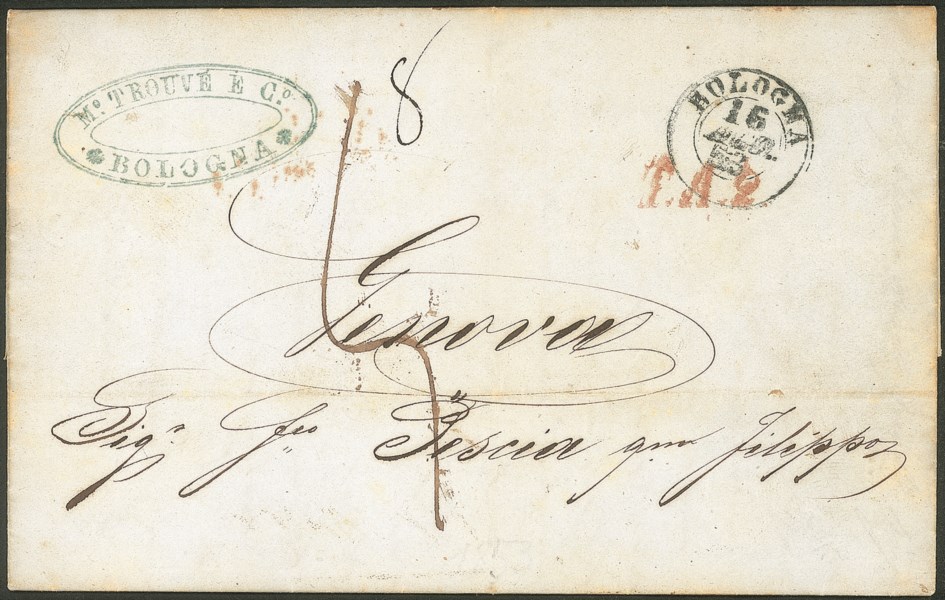 Mo. TROUVÉ E Co.
BOLOGNA
8
BOLOGNA
16
T.A.2.
Genova
Sigr. Fco Pescia qm Filippo